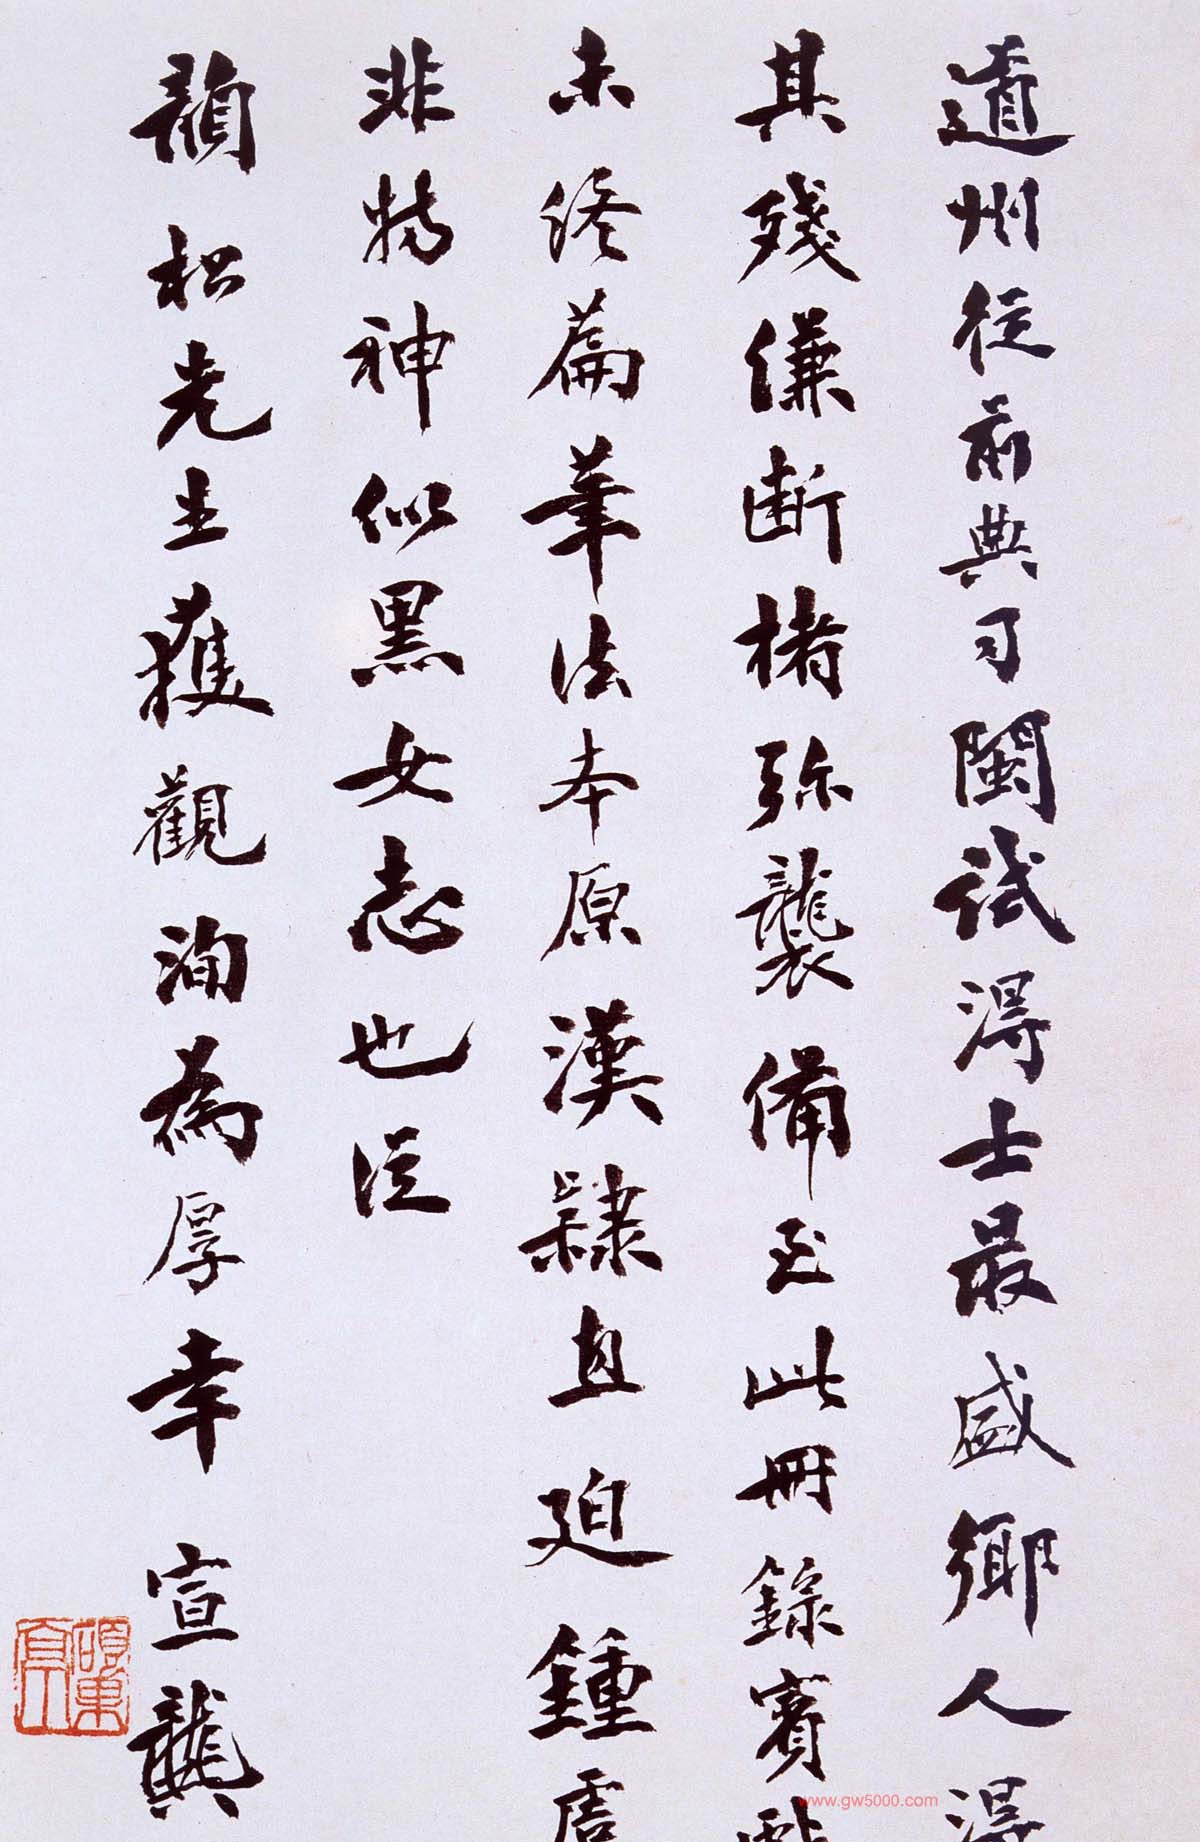 道州從前典司閩試得士最盛鄉人得
其殘縑斷楮珍襲備至此冊錄賓戲
未終篇筆法本原漢隸直迫鍾虞
非特神似黑女志也從
韻松先生獲觀洵為厚幸 宣龔
www.gw5000.com